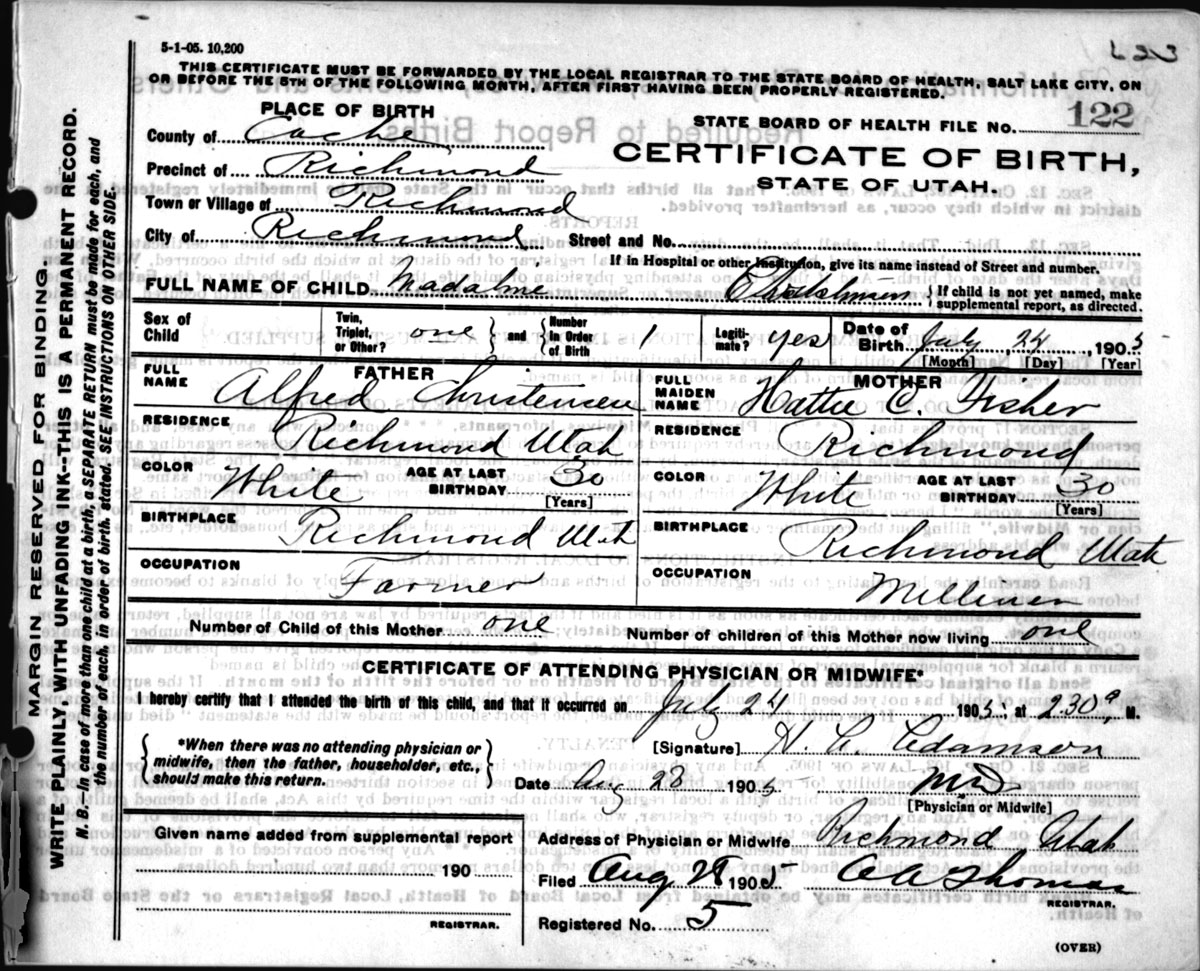 5-1-05. 10,200
THIS CERTIFICATE MUST BE FORWARDED BY THE LOCAL REGISTRAR TO THE STATE BOARD OF HEALTH, SALT LAKE CITY, ON
OR BEFORE THE 5TH OF THE FOLLOWING MONTH, AFTER FIRST HAVING BEEN PROPERLY REGISTERED.
PLACE OF BIRTH
STATE BOARD OF HEALTH FILE NO. 122
County of Cache
CERTIFICATE OF BIRTH,
Precinct of Richmond
STATE OF UTAH.
Town or Village of Richmond
City of Richmond Street and No.
If in Hospital or other Institution, give its name instead of Street and number.
FULL NAME OF CHILD Madaline { If child is not yet named, make
supplemental report, as directed.
Sex of Child Twin, Triplet, or Other? one } and { Number in Order of Birth 1 Legiti- mate? yes Date of Birth July 24, 1905
[Month] [Day] [Year]
FATHER
FULL NAME Alfred Christensen
RESIDENCE Richmond Utah
COLOR White AGE AT LAST BIRTHDAY 30
[Years]
BIRTHPLACE Richmond Utah
OCCUPATION Farmer
MOTHER
FULL MAIDEN NAME Hattie C. Fisher
RESIDENCE Richmond
COLOR White AGE AT LAST BIRTHDAY 30
[Years]
BIRTHPLACE Richmond Utah
OCCUPATION Milliner
Number of Child of this Mother one Number of children of this Mother now living one
CERTIFICATE OF ATTENDING PHYSICIAN OR MIDWIFE*
I hereby certify that I attended the birth of this child, and that it occurred on July 24 1905, at 230 a, M.
{ *When there was no attending physician or
midwife, then the father, householder, etc.,
should make this return. }
[Signature] H. C. Adamson
Date Aug 28 1905 MD
[Physician or Midwife]
Given name added from supplemental report
190
REGISTRAR.
Address of Physician or Midwife Richmond Utah
Filed Aug 28 1905 A Thomas
REGISTRAR.
Registered No. 5
(OVER)
MARGIN RESERVED FOR BINDING.
WRITE PLAINLY, WITH UNFADING INK--THIS IS A PERMANENT RECORD.
N. B. In case of more than one child at a birth, a SEPARATE RETURN must be made for each, and
the number of each, in order of birth, stated. SEE INSTRUCTIONS ON OTHER SIDE.